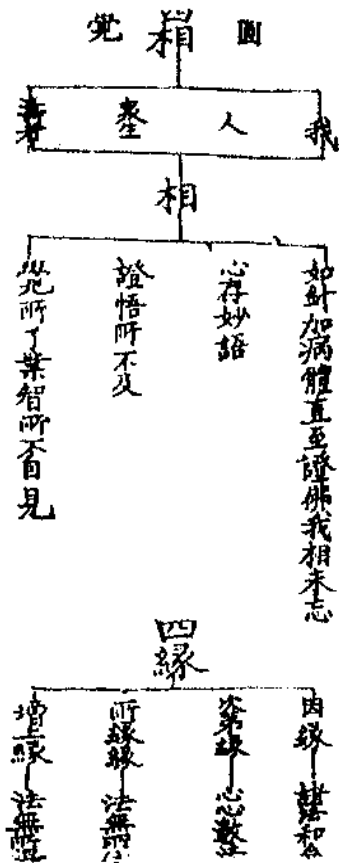 圓覺
相
我
人
衆生
壽者
相
如針加病體直至證佛我相未忘
心存妙語
證悟所不及
所了業智所不自見
四緣
因緣
和合
次第緣
心心數法
所緣緣
法無
增上緣
法無所